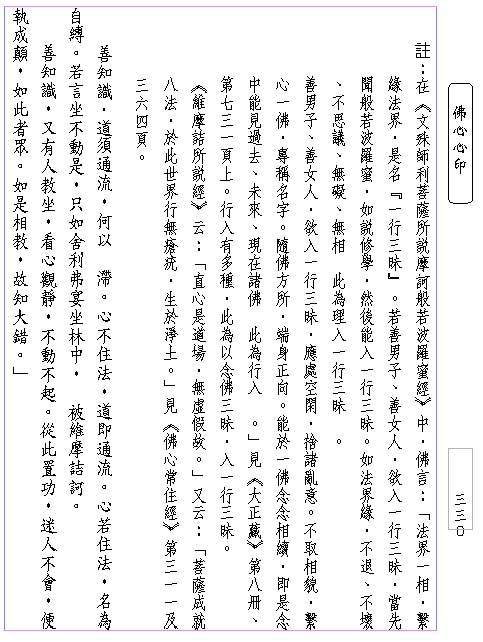 佛心心印
註：在《文殊師利菩薩所說摩訶般若波羅蜜經》中，佛言：「法界一相，繫
緣法界，是名『一行三昧』。若善男子、善女人，欲入一行三昧，當先
聞般若波羅蜜，如說修學，然後能入一行三昧。如法界緣，不退、不壞
、不思議、無礙、無相　此為理入一行三昧　。
善男子、善女人，欲入一行三昧，應處空閑，捨諸亂意。不取相貌，繫
心一佛，專稱名字。隨佛方所，端身正向。能於一佛念念相續，即是念
中能見過去、未來、現在諸佛　此為行入　。」見《大正藏》第八冊、
第七三一頁上。行入有多種，此為以念佛三昧，入一行三昧。
《維摩詰所說經》云：「直心是道場，無虛假故。」又云：「菩薩成就
八法，於此世界行無瘡疣，生於淨土。」見《佛心常住經》第三一一及
三六四頁。
善知識，道須通流，何以　滯。心不住法，道即通流。心若住法，名為
自縛。若言坐不動是，只如舍利弗宴坐林中，　被維摩詰訶。
善知識，又有人教坐，看心觀靜，不動不起。從此置功，迷人不會，便
執成顛，如此者眾。如是相教，故知大錯。」
三三○